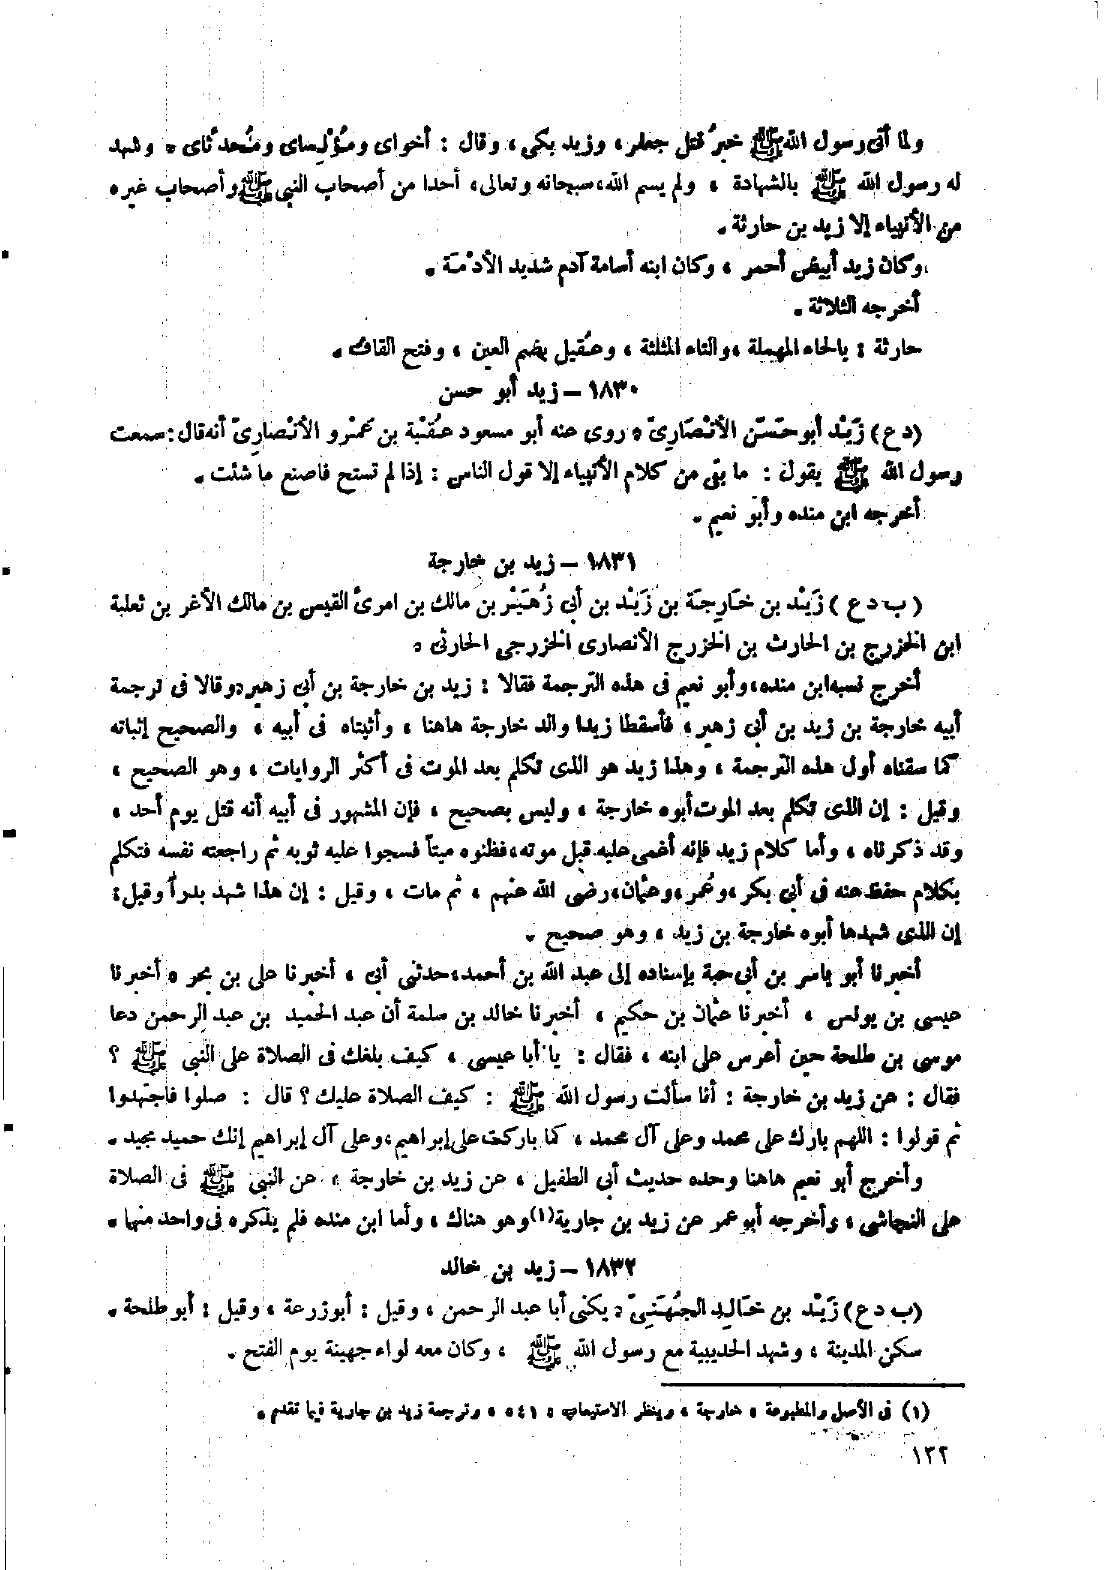 ولما أتى رسول الله ﷺ خبرُ قتل جعفر، وزيد بكى، وقال : أخواى ومُؤْنِساى ومُحَدِّثاى ، وشهد
له رسول الله ﷺ بالشهادة ، ولم يسم الله، سبحانه وتعالى، أحدا من أصحاب النبى ﷺ وأصحاب غيره
من الأنبياء إلا زيد بن حارثة .
وكان زيد أبيض أحمر ، وكان ابنه أسامة آدم شديد الأدْمَة .
أخرجه الثلاثة .
حارثة : بالحاء المهملة ، والثاء المثلثة ، وعُقيل بضم العين ، وفتح القاف .
١٨٣٠ – زيد أبو حسن
(دع) زَيْد أبو حَسَن الأنْصَارِىّ ، روى عنه أبو مسعود عُقْبة بن عَمْرو الأنْصارِىّ أنه قال : سمعت
رسول الله ﷺ يقول : ما بقى من كلام الأنبياء إلا قول الناس : إذا لم تستح فاصنع ما شئت .
أخرجه ابن منده وأبو نعيم .
١٨٣١ – زيد بن خارجة
( ب د ع ) زَيْد بن خَارِجَة بن زَيْد بن أبى زُهَيْر بن مالك بن امرئ القيس بن مالك الأغر بن ثعلبة
ابن الخزرج بن الحارث بن الخزرج الأنصارى الخزرجى الحارثى ،
أخرج نسبه ابن منده، وأبو نعيم فى هذه الترجمة فقالا : زيد بن خارجة بن أبى زهير، وقالا فى ترجمة
أبيه خارجة بن زيد بن أبى زهير، فأسقطا زيدا والد خارجة هاهنا ، وأثبتاه فى أبيه ، والصحيح إثباته
كما سقناه أول هذه الترجمة ، وهذا زيد هو الذى تكلم بعد الموت فى أكثر الروايات ، وهو الصحيح ،
وقيل : إن الذى تكلم بعد الموت أبوه خارجة ، وليس بصحيح ، فإن المشهور فى أبيه أنه قتل يوم أحد ،
وقد ذكرناه ، وأما كلام زيد فإنه أغمى عليه قبل موته، فظنوه ميتاً فسجوا عليه ثوبه ثم راجعته نفسه فتكلم
بكلام حفظ عنه فى أبى بكر، وعُمر، وعثمان، رضى الله عنهم ، ثم مات ، وقيل : إن هذا شهد بدراً وقيل :
إن الذى شهدها أبوه خارجة بن زيد ، وهو صحيح .
أخبرنا أبو ياسر بن أبى حبة بإسناده إلى عبد الله بن أحمد، حدثنى أبى ، أخبرنا على بن بحر ، أخبرنا
عيسى بن يونس ، أخبرنا عثمان بن حكيم ، أخبرنا خالد بن سلمة أن عبد الحميد بن عبد الرحمن دعا
موسى بن طلحة حين أعرس على ابنه ، فقال : يا أبا عيسى ، كيف بلغك فى الصلاة على النبى ﷺ ؟
فقال : عن زيد بن خارجة : أنا سألت رسول الله ﷺ : كيف الصلاة عليك ؟ قال : صلوا فاجتهدوا
ثم قولوا : اللهم بارك على محمد وعلى آل محمد ، كما باركت على إبراهيم، وعلى آل إبراهيم إنك حميد مجيد .
وأخرج أبو نعيم هاهنا وحده حديث أبى الطفيل ، عن زيد بن خارجة ، عن النبى ﷺ فى الصلاة
على النجاشى ، وأخرجه أبو عمر عن زيد بن جارية(١) وهو هناك ، وأما ابن منده فلم يذكره فى واحد منها .
١٨٣٢ – زيد بن خالد
(ب د ع) زَيْد بن خَالِد الجُهَنِىّ : يكنى أبا عبد الرحمن ، وقيل : أبو زرعة ، وقيل : أبو طلحة .
سكن المدينة ، وشهد الحديبية مع رسول الله ﷺ ، وكان معه لواء جهينة يوم الفتح .
(١) فى الأصل والمطبوعة ، خارجة ، وينظر الاستيعاب ، ٥٤١ ، وترجمة زيد بن جارية فيما تقدم .
١٣٢